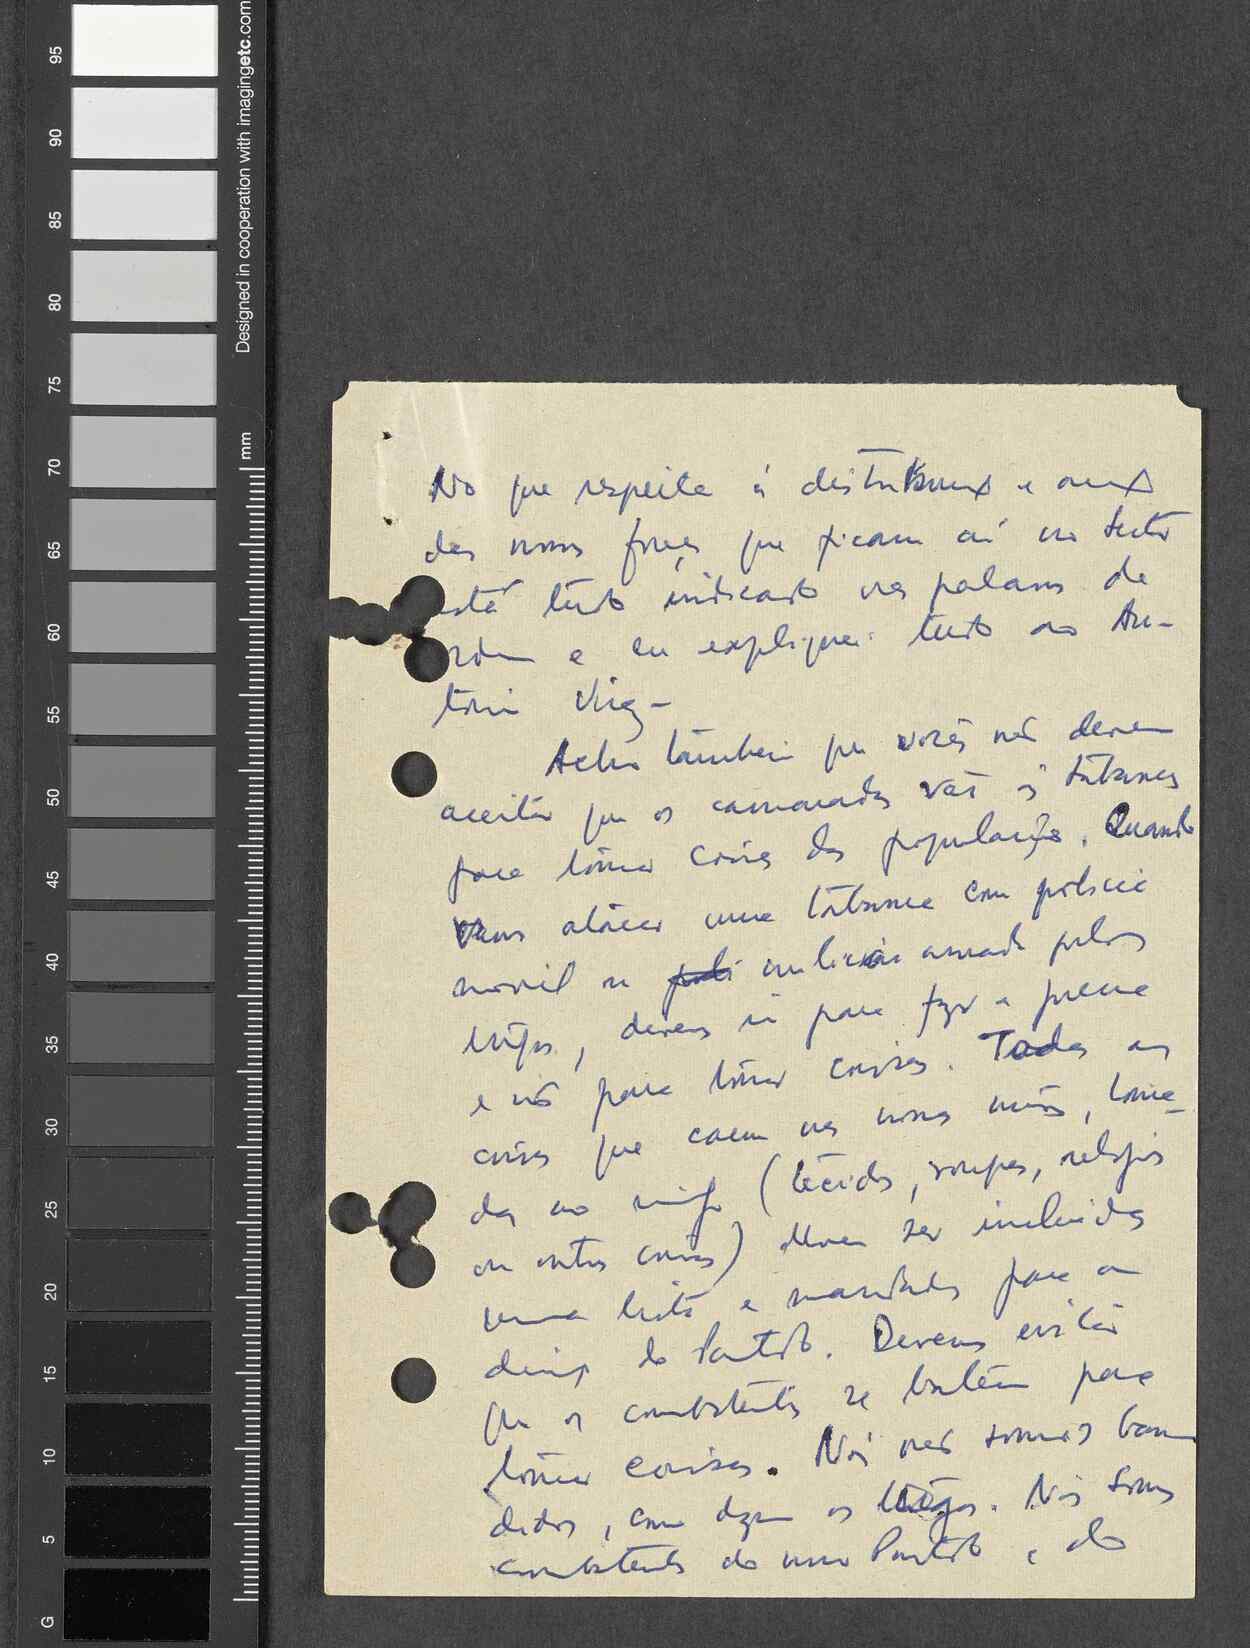 95
90
85
80
75
70
65
60
55
50
45
40
35
30
25
20
15
10
5
G
mm
Designed in cooperation with imagingetc.com
No que respeita à distribuição e
das nossas forças que ficam aí no Sector
está tudo indicado nas palavras de
ordem e eu expliquei tudo ao An-
tónio
Acho também que vocês não devem
aceitar que os camaradas vão às tabancas
para tomar coisas da população. Quando
vamos atacar uma tabanca com polícia
móvel ou milícia armada pelos
tugas, devemos ir para fazer a guerra
e não para tomar coisas. Todas as
coisas que caem nas nossas mãos, toma-
das ao inimigo (tecidos, roupas, relógios
ou outras coisas) devem ser incluidas
numa lista e mandadas para a
direcção do Partido. Devemos evitar
que os combatentes se batem para
tomar coisas. Nós não somos ban
didos, como dizem os tugas. Nós somos
combatentes do nosso Partido e do